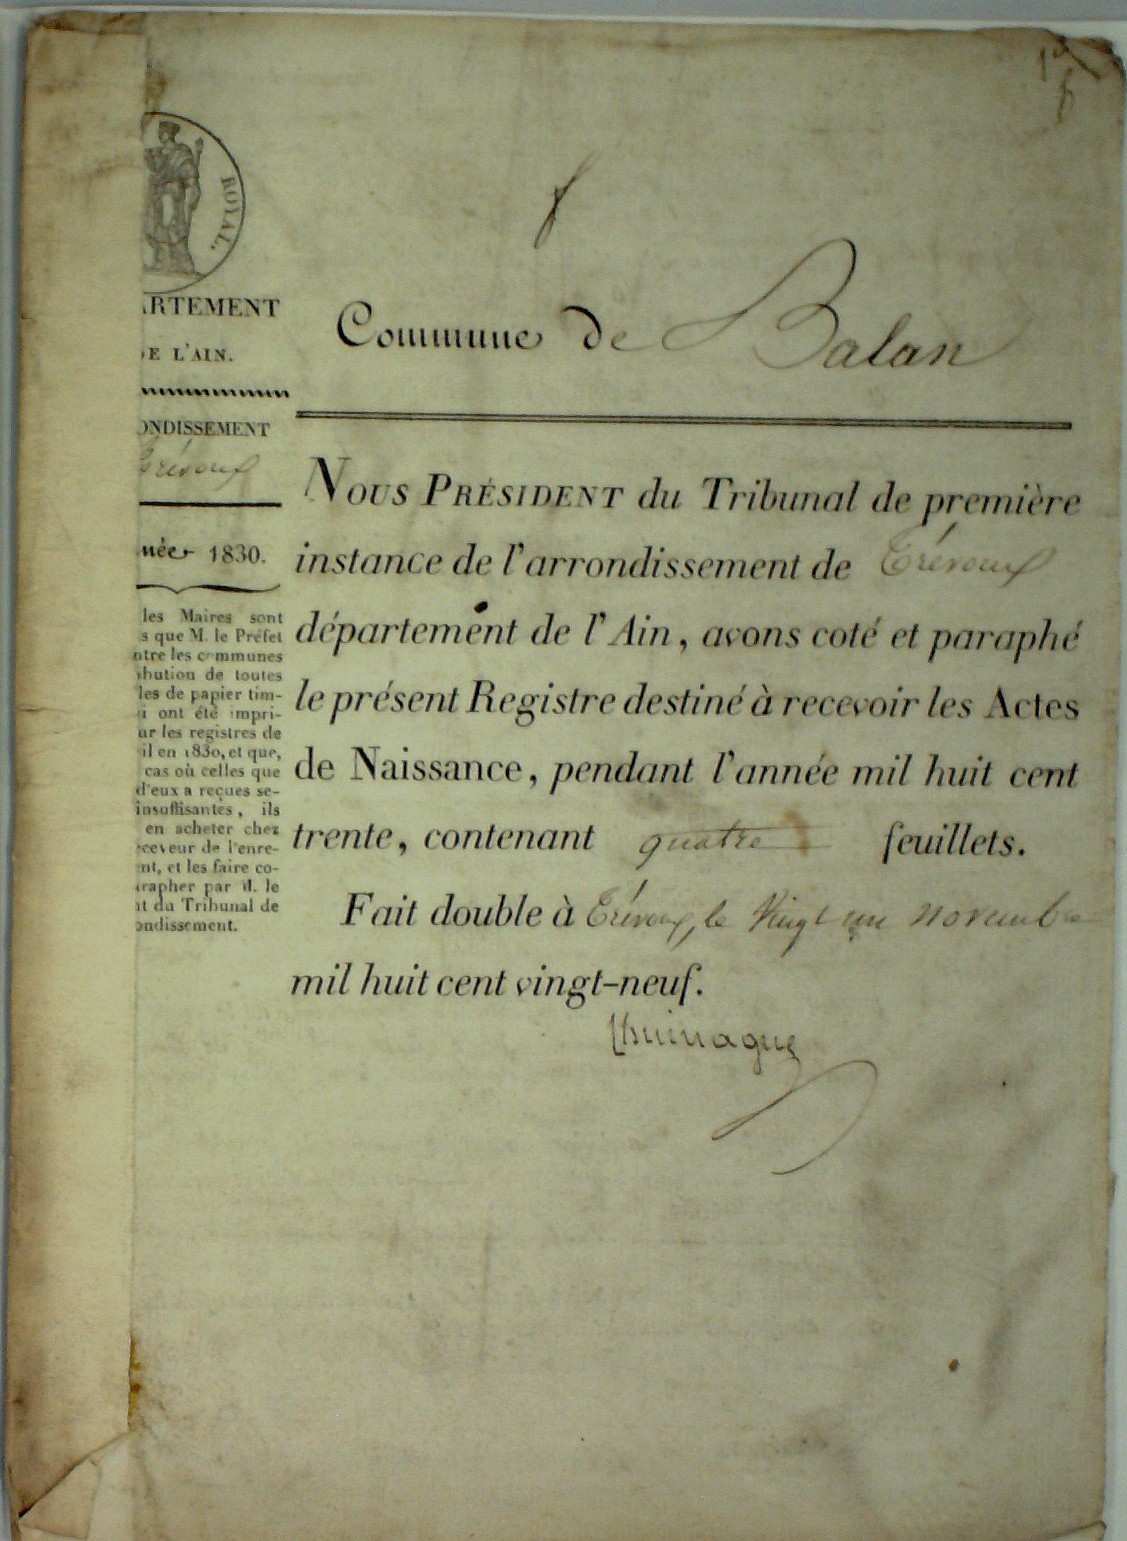 ROYAL.
ARTEMENT
DE L'AIN.
ONDISSEMENT
Trévoux
née 1830.
les Maires sont
s que M. le Préfet
ntre les communes
ibution de toutes
les de papier tim-
i ont été impri-
ur les registres de
il en 1830, et que,
cas où celles que
d'eux a reçues se-
insuffisantes, ils
en acheter chez
ceveur de l'enre-
nt, et les faire co-
rapher par M. le
nt du Tribunal de
ondissement.
Commune de Balan
NOUS PRÉSIDENT du Tribunal de première
instance de l'arrondissement de Trévoux
département de l'Ain, avons coté et paraphé
le présent Registre destiné à recevoir les Actes
de Naissance, pendant l'année mil huit cent
trente, contenant quatre feuillets.
Fait double à Trévoux, le Vingt un novembre
mil huit cent vingt-neuf.